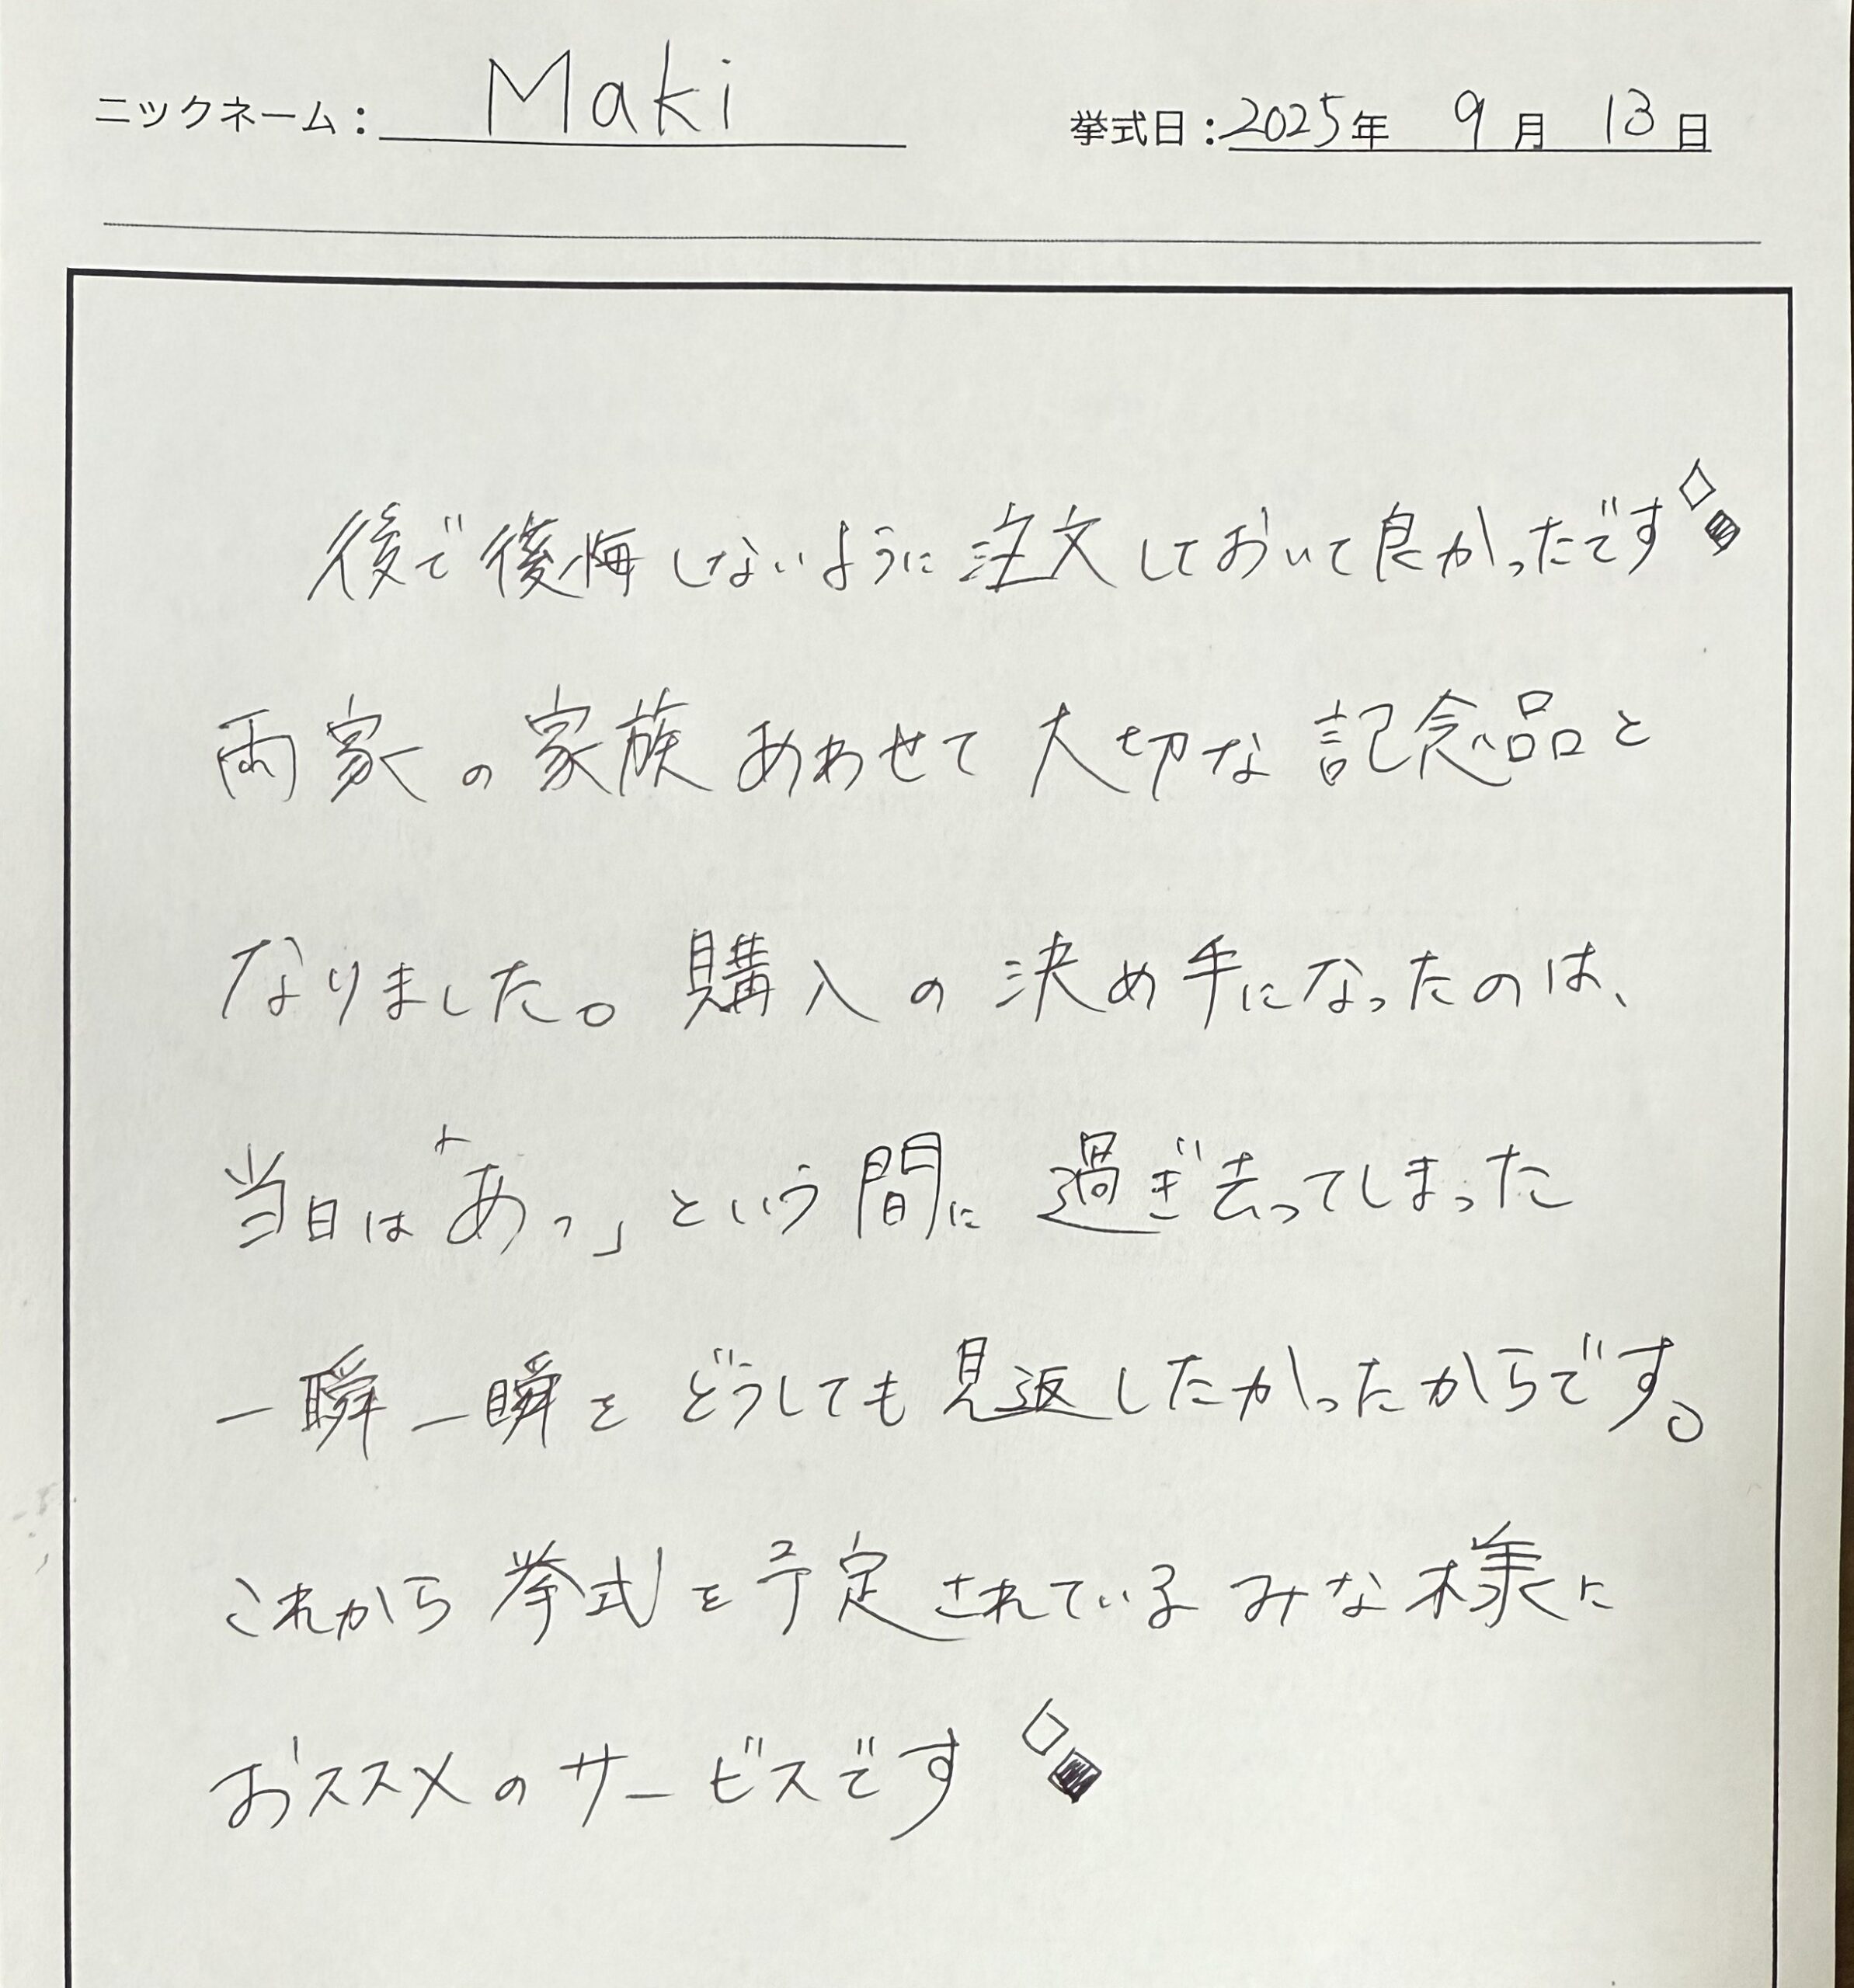 ニックネーム： Maki 挙式日：2025年 9月 13日
後で後悔しないように注文しておいて良かったです
両家の家族あわせて大切な記念品と
なりました。購入の決め手になったのは、
当日は「あっ」という間に過ぎ去ってしまった
一瞬一瞬をどうしても見返したかったからです。
これから挙式を予定されているみな様に
おススメのサービスです